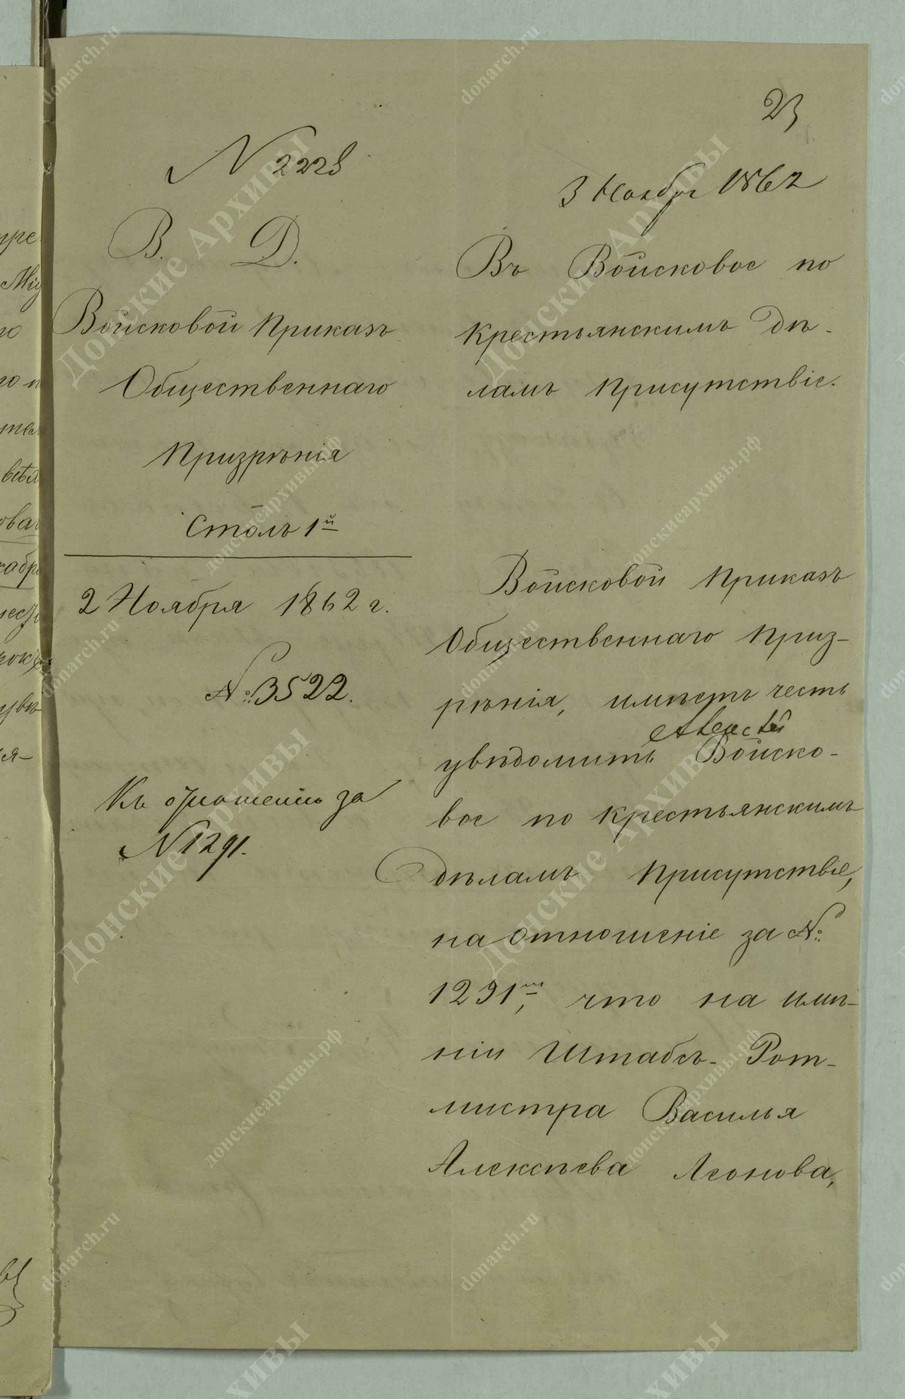 23
N 2228
3 Ноября 1862
В. Д.
Войсковой Приказъ
Общественнаго
Призрѣнія
Столъ 1й
2 Ноября 1862 г.
№ 3522.
Къ отношенію за
N 1291.
Въ Войсковое по
крестьянскимъ Дѣ-
ламъ Присутствіе.
Войсковой Приказъ
Общественнаго Приз-
рѣнія, имѣетъ честь
увѣдомить Войско-
вое по крестьянскимъ
дѣламъ Присутствіе,
на отношеніе за №
1291, что на имѣ-
ніи Штабсъ-Рот-
мистра Василья
Алексѣева Леонова,
донскиеархивы.рф
donarch.ru
Донские Архивы